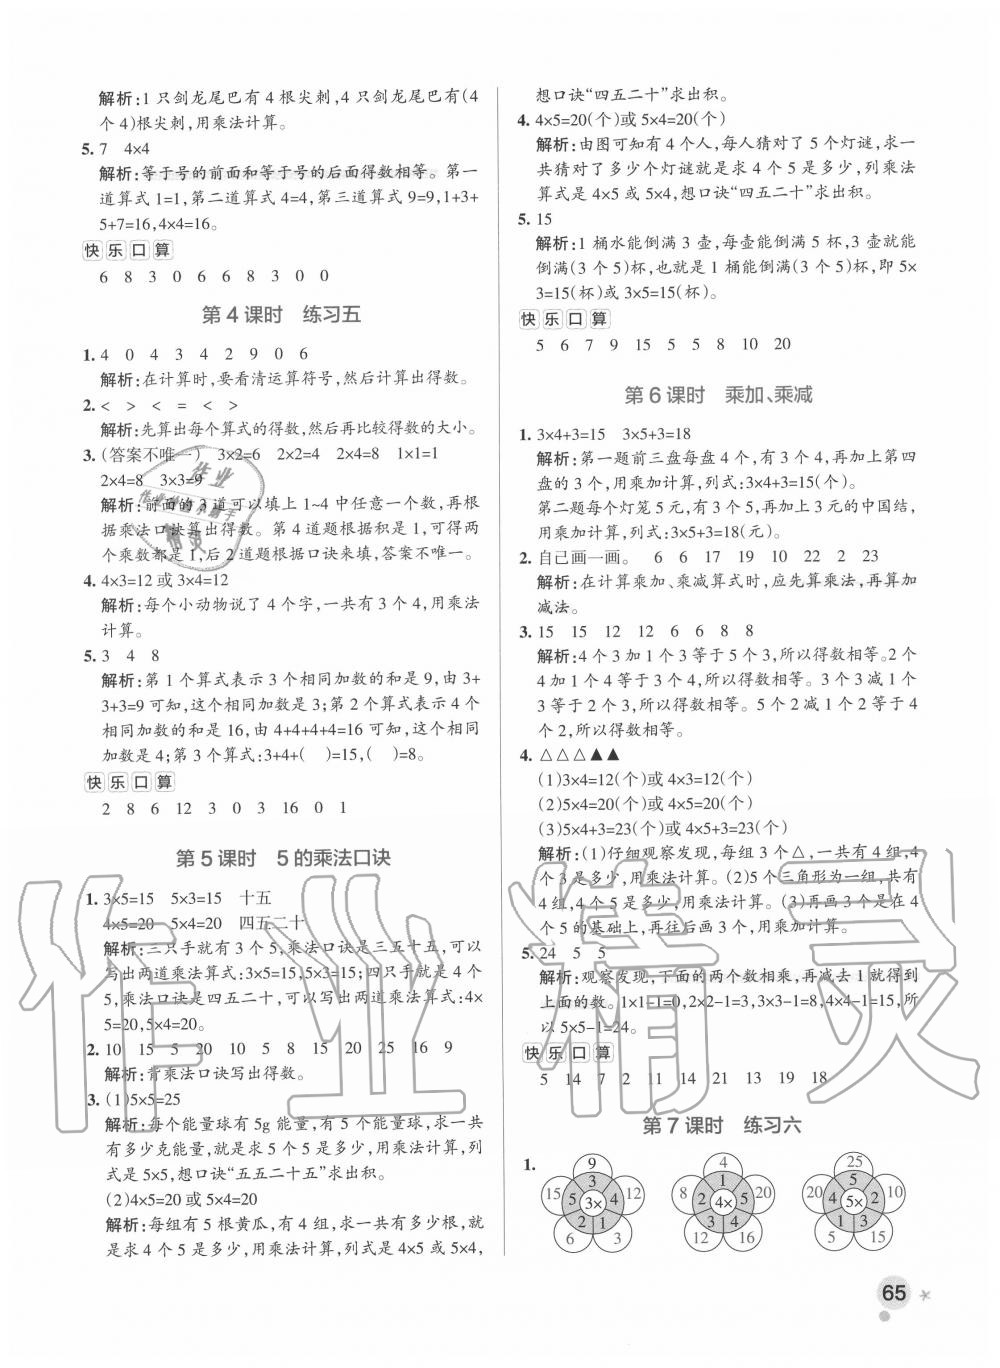 解析:1只剑龙尾巴有4根尖刺,4只剑龙尾巴有(4
个4)根尖刺,用乘法计算。
5. 7 4×4
解析:等于号的前面和等于号的后面得数相等。第一
道算式1=1,第二道算式4=4,第三道算式9=9,1+3+
5+7=16,4×4=16。
快乐口算
6 8 3 0 6 6 8 3 0 0
第4课时 练习五
1. 4 0 4 3 4 2 9 0 6
解析:在计算时,要看清运算符号,然后计算出得数。
2. < > < = < >
解析:先算出每个算式的得数,然后再比较得数的大小。
3. (答案不唯一) 3×2=6 2×2=4 4×2=8 1×1=1
2×4=8 3×3=9
解析:前面的3道可以填上1~4中任意一个数,再根
据乘法口诀算出得数。第4道题根据积是1,可得两
个乘数都是1,后2道题根据口诀来填,答案不唯一。
4. 4×3=12或3×4=12
解析:每个小动物说了4个字,一共有3个4,用乘法
计算。
5. 3 4 8
解析:第1个算式表示3个相同加数的和是9,由3+
3+3=9可知,这个相同加数是3;第2个算式表示4个
相同加数的和是16,由4+4+4+4=16可知,这个相同
加数是4;第3个算式:3+4+( )=15,( )=8。
快乐口算
2 8 6 12 3 0 3 16 0 1
第5课时 5的乘法口诀
1. 3×5=15 5×3=15 十五
4×5=20 5×4=20 四五二十
解析:三只手就有3个5,乘法口诀是三五十五,可以
写出两道乘法算式:3×5=15,5×3=15;四只手就是4个
5,乘法口诀是四五二十,可以写出两道乘法算式:4×
5=20,5×4=20。
2. 10 15 5 20 10 5 8 15 20 25 16 9
解析:背乘法口诀写出得数。
3. (1)5×5=25
解析:每个能量球有5g能量,有5个能量球,求一共
有多少克能量,就是求5个5是多少,用乘法计算,列
式是5×5,想口诀“五五二十五”求出积。
(2)4×5=20或5×4=20
解析:每组有5根黄瓜,有4组,求一共有多少根,就
是求4个5是多少,用乘法计算,列式是4×5或5×4,
想口诀“四五二十”求出积。
4. 4×5=20(个)或5×4=20(个)
解析:由图可知有4个人,每人猜对了5个灯谜,求一
共猜对了多少个灯谜就是求4个5是多少,列乘法
算式是4×5或5×4,想口诀“四五二十”求出积。
5. 15
解析:1桶水能倒满3壶,每壶能倒满5杯,3壶就能
倒满(3个5)杯,也就是1桶能倒满(3个5)杯,即5×
3=15(杯)或3×5=15(杯)。
快乐口算
5 6 7 9 15 5 5 8 10 20
第6课时 乘加、乘减
1. 3×4+3=15 3×5+3=18
解析:第一题前三盘每盘4个,有3个4,再加上第四
盘的3个,用乘加计算,列式:3×4+3=15(个)。
第二题每个灯笼5元,有3个5,再加上3元的中国结,
用乘加计算,列式:3×5+3=18(元)。
2. 自己画一画。 6 6 17 19 10 22 2 23
解析:在计算乘加、乘减算式时,应先算乘法,再算加
减法。
3. 15 15 12 12 6 6 8 8
解析:4个3加1个3等于5个3,所以得数相等。2个
4加1个4等于3个4,所以得数相等。3个3减1个
3等于2个3,所以得数相等。5个2减1个2等于4
个2,所以得数相等。
4. △△△▲▲
(1)3×4=12(个)或4×3=12(个)
(2)5×4=20(个)或4×5=20(个)
(3)5×4+3=23(个)或4×5+3=23(个)
解析:(1)仔细观察发现,每组3个△,一共有4组,4
个3是多少,用乘法计算。(2)5个三角形为一组,共有
4组,4个5是多少,用乘法计算。(3)再画3个是在4
个5的基础上,再往后画3个,用乘加计算。
5. 24 5 5
解析:观察发现,下面的两个数相乘,再减去1就得到
上面的数。1×1-1=0,2×2-1=3,3×3-1=8,4×4-1=15,所
以5×5-1=24。
快乐口算
5 14 7 2 11 8 14 13 19 18
第7课时 练习六
1.
9 4 25
15 3 12 8 1 20 20 5 10
5 3× 4 2 4× 5 4 5× 2
2 1 3 4 1 3
6 3 12 16 5 15
65
作业精灵